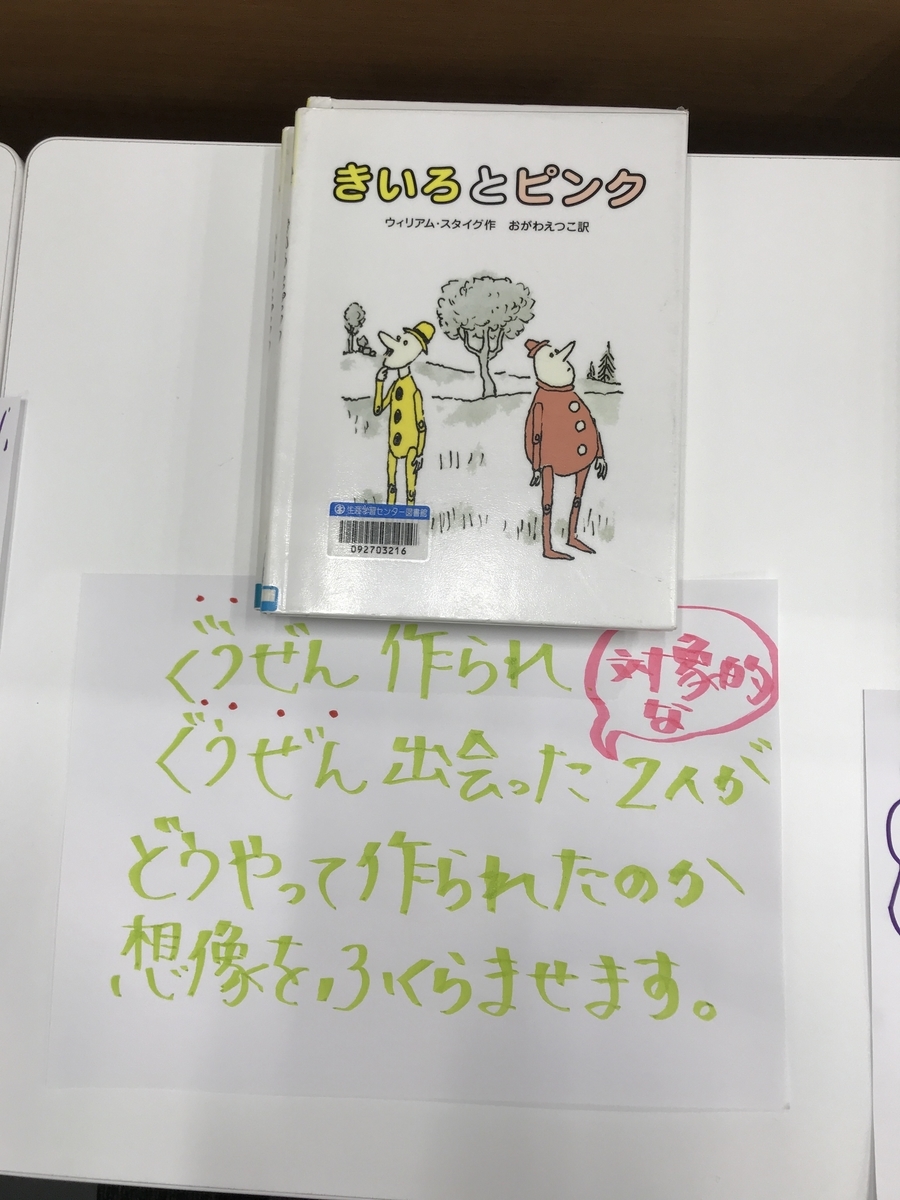 きいろとピンク
ウィリアム・スタイグ作 おがわえつこ訳
生涯学習センター図書館
092703216
ぐうぜん作られ
対象的
な
ぐうぜん出会った2人が
どうやって作られたのか
想像をふくらませます。